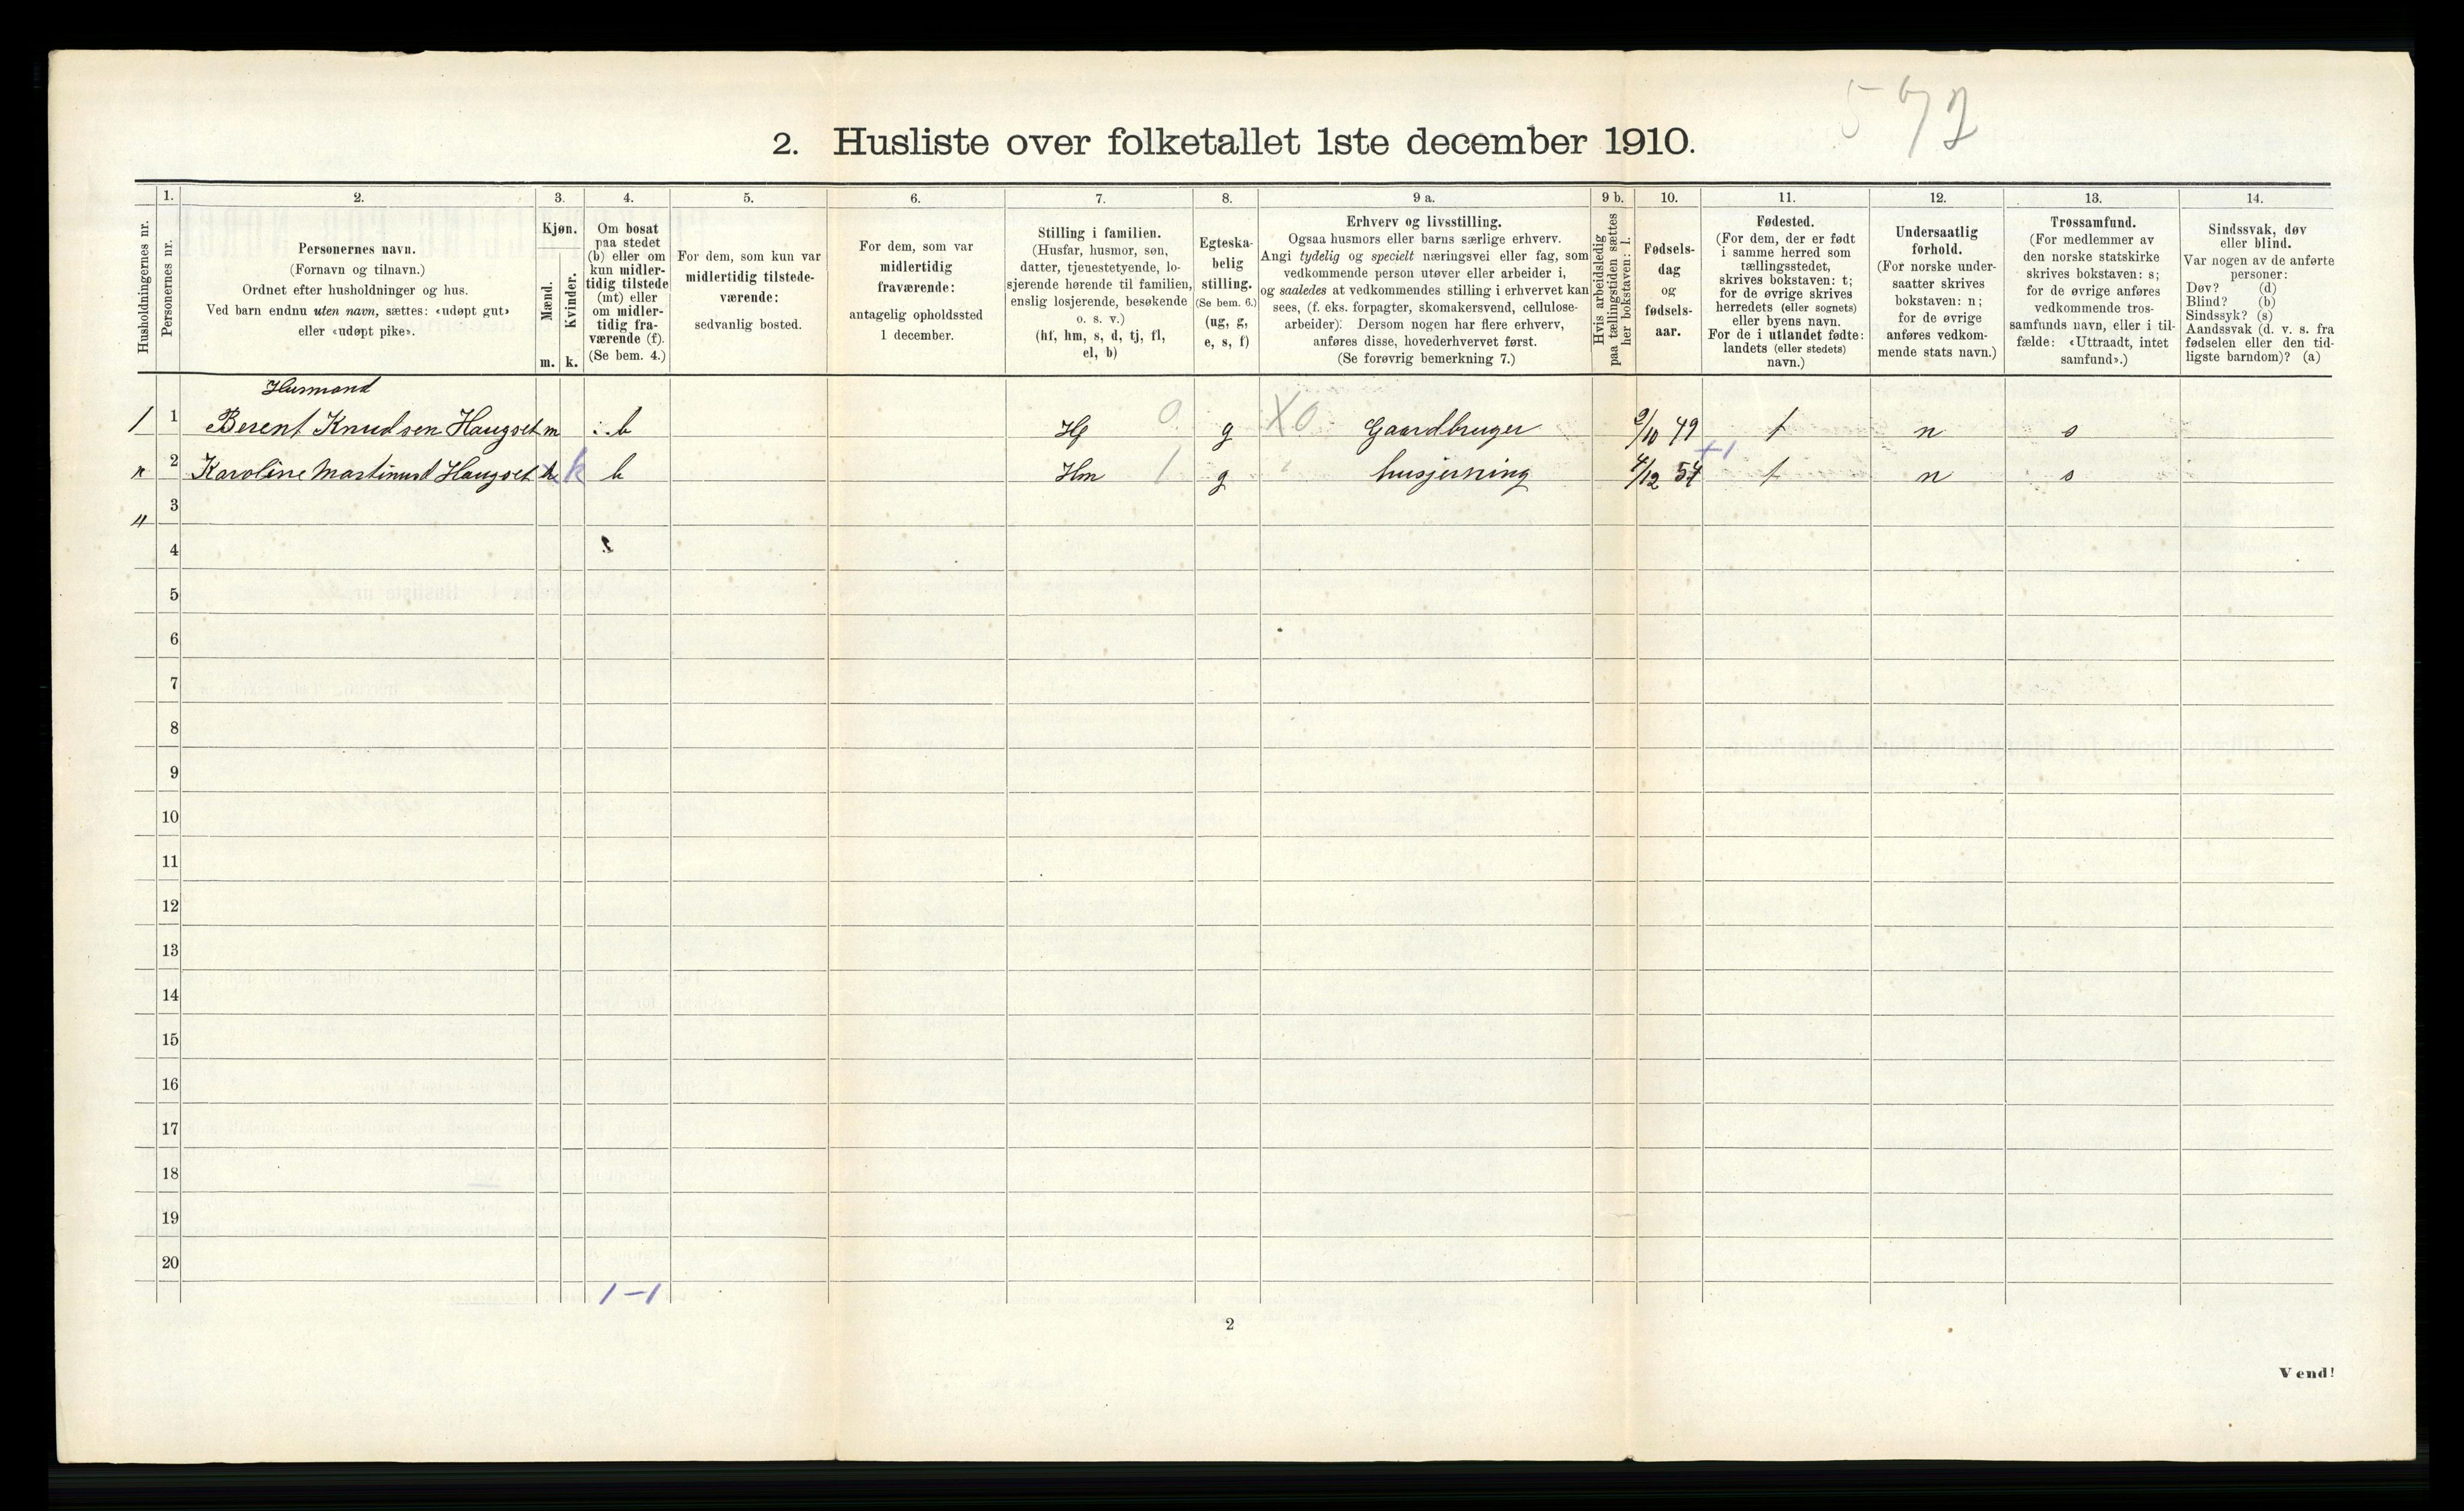 572
2. Husliste over folketallet 1ste december 1910.
Husholdningernes nr.
1.
Personernes nr.
2.
Personernes navn.
(Fornavn og tilnavn.)
Ordnet efter husholdninger og hus.
Ved barn endnu uten navn, sættes: «udøpt gut»
eller «udøpt pike».
3.
Kjøn.
Mænd.
Kvinder.
m. k.
4.
Om bosat
paa stedet
(b) eller om
kun midler-
tidig tilstede
(mt) eller
om midler-
tidig fra-
værende (f).
(Se bem. 4.)
5.
For dem, som kun var
midlertidig tilstede-
værende:
sedvanlig bosted.
6.
For dem, som var
midlertidig
fraværende:
antagelig opholdssted
1 december.
7.
Stilling i familien.
(Husfar, husmor, søn,
datter, tjenestetyende, lo-
sjerende hørende til familien,
enslig losjerende, besøkende
o. s. v.)
(hf, hm, s, d, tj, fl,
el, b)
8.
Egteska-
belig
stilling.
(Se bem. 6.)
(ug, g,
e, s, f)
9 a.
Erhverv og livsstilling.
Ogsaa husmors eller barns særlige erhverv.
Angi tydelig og specielt næringsvei eller fag, som
vedkommende person utøver eller arbeider i,
og saaledes at vedkommendes stilling i erhvervet kan
sees, (f. eks. forpagter, skomakersvend, cellulose-
arbeider). Dersom nogen har flere erhverv,
anføres disse, hovederhvervet først.
(Se forøvrig bemerkning 7.)
9 b.
Hvis arbeidsledig
paa tællingstiden sættes
her bokstaven: l.
10.
Fødsels-
dag
og
fødsels-
aar.
11.
Fødested.
(For dem, der er født
i samme herred som
tællingsstedet,
skrives bokstaven: t;
for de øvrige skrives
herredets (eller sognets)
eller byens navn.
For de i utlandet fødte:
landets (eller stedets)
navn.)
12.
Undersaatlig
forhold.
(For norske under-
saatter skrives
bokstaven: n;
for de øvrige
anføres vedkom-
mende stats navn.)
13.
Trossamfund.
(For medlemmer av
den norske statskirke
skrives bokstaven: s;
for de øvrige anføres
vedkommende tros-
samfunds navn, eller i til-
fælde: «Uttraadt, intet
samfund».)
14.
Sindssvak, døv
eller blind.
Var nogen av de anførte
personer:
Døv? (d)
Blind? (b)
Sindssyk? (s)
Aandssvak (d. v. s. fra
fødselen eller den tid-
ligste barndom)? (a)
Husmand
1 1 Berent Knudsen Haugset m b Hf 0 g X0 Gaardbruger 9/10 49 t n s
2 Karoline Martinusd Haugset k k b Hm 1 g husjerning 4/12 54 +1 t n s
3
4
5
6
7
8
9
10
11
12
13
14
15
16
17
18
19
20
1-1
2
Vend!